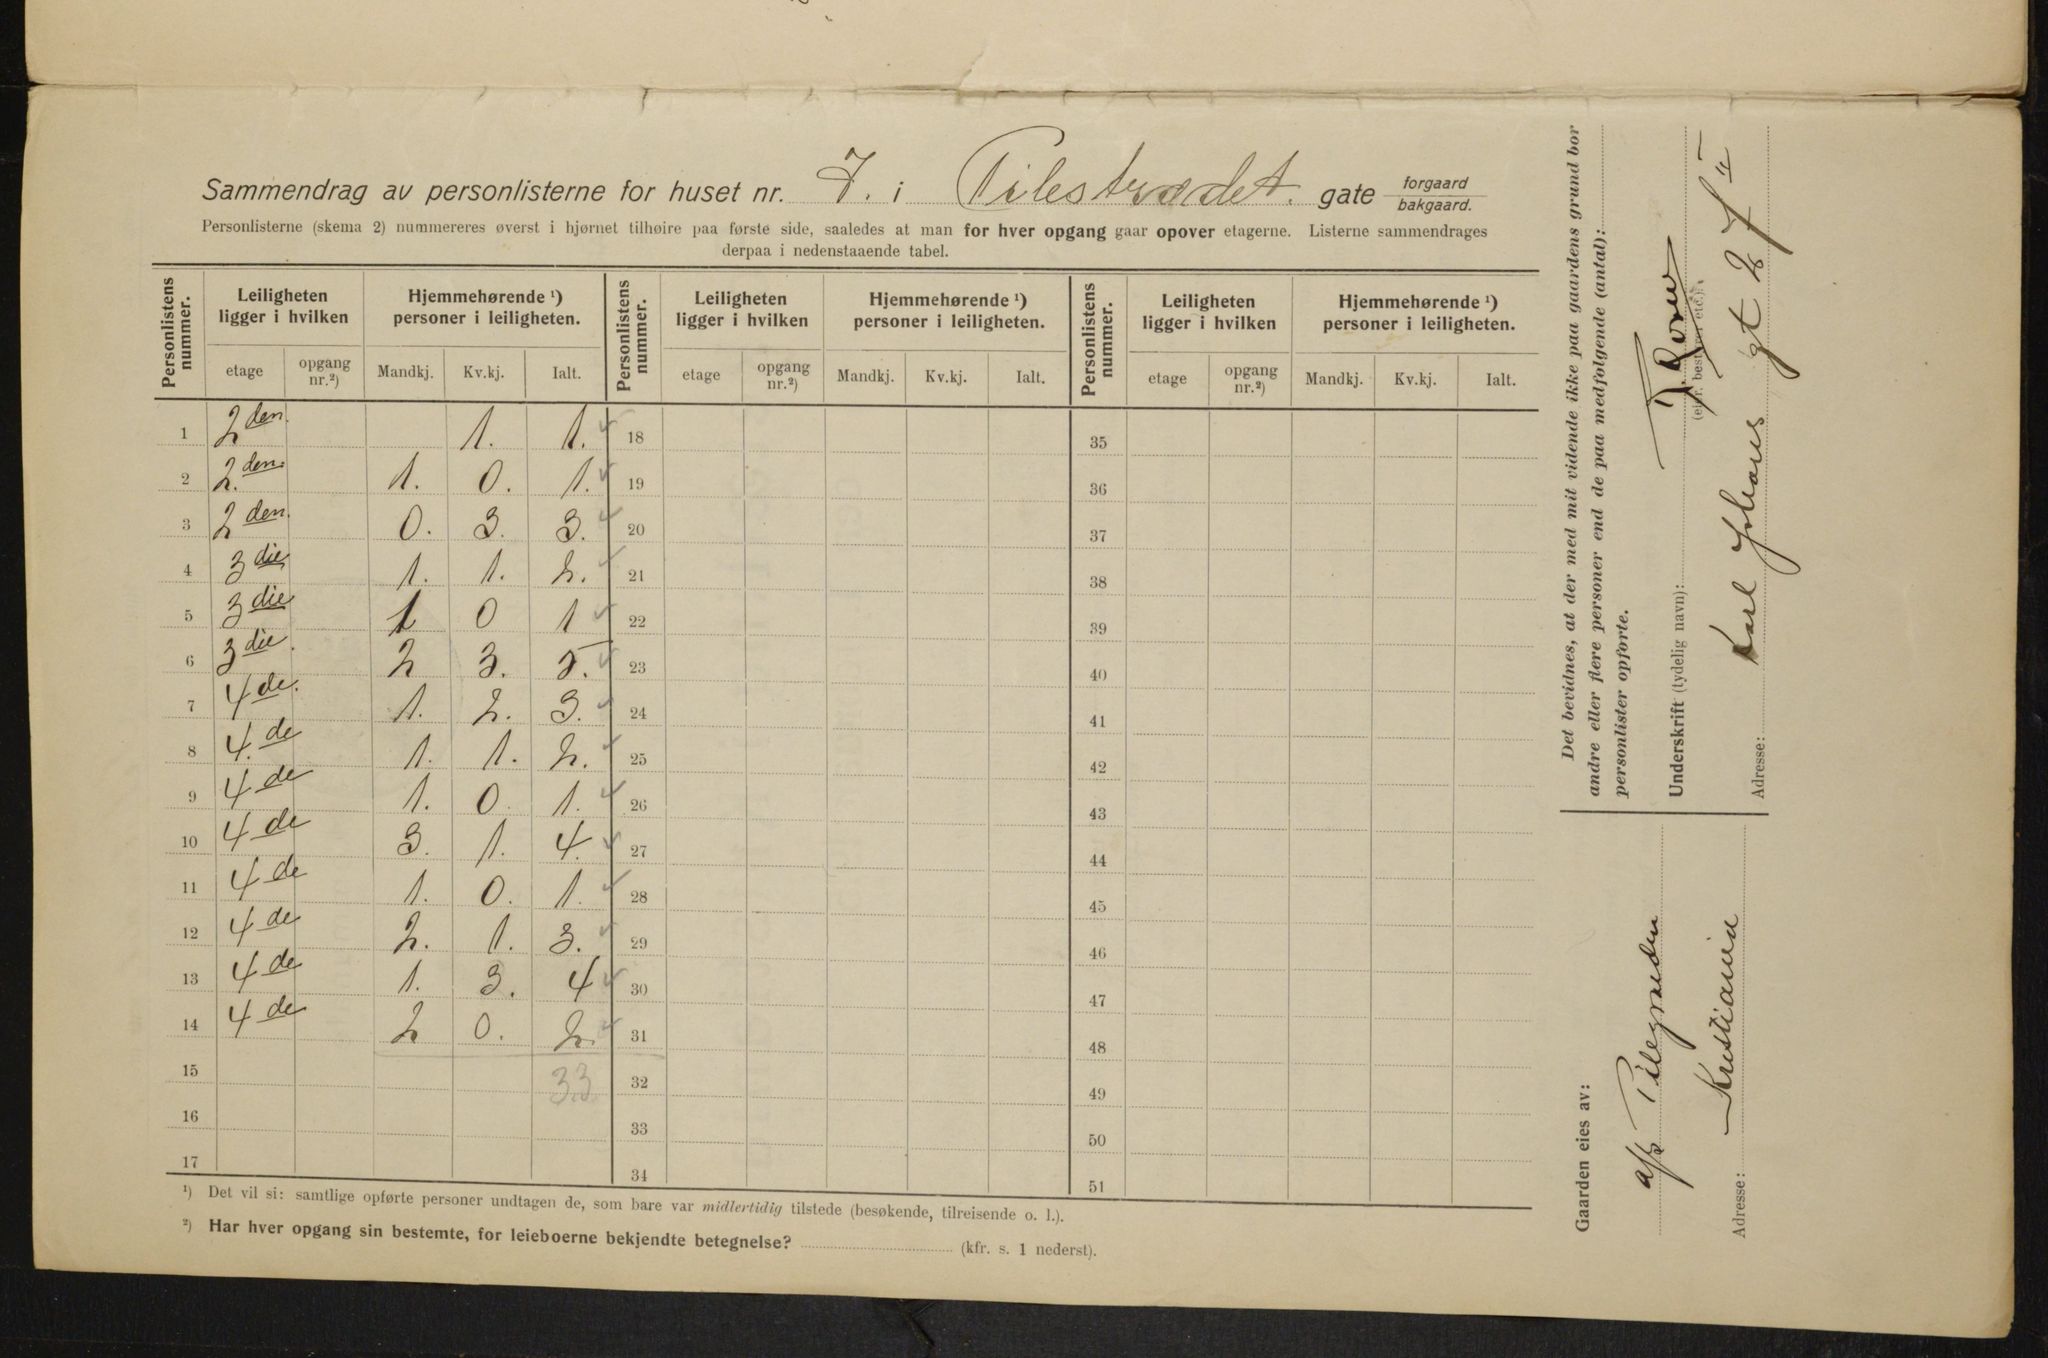 Sammendrag av personlisterne for huset nr. 7. i Pilestrædet. gate forgaard bakgaard.
Personlisterne (skema 2) nummereres øverst i hjørnet tilhøire paa første side, saaledes at man for hver opgang gaar opover etagerne. Listerne sammendrages
derpaa i nedenstaaende tabel.
Personlistens nummer. Leiligheten ligger i hvilken Hjemmehørende ¹) personer i leiligheten. Personlistens nummer. Leiligheten ligger i hvilken Hjemmehørende ¹) personer i leiligheten. Personlistens nummer. Leiligheten ligger i hvilken Hjemmehørende ¹) personer i leiligheten.
etage opgang nr.²) Mandkj. Kv.kj. Ialt. etage opgang nr.²) Mandkj. Kv.kj. Ialt. etage opgang nr.²) Mandkj. Kv.kj. Ialt.
1 2den. 1. 1. 18 35
2 2.den. 1. 0. 1. 19 36
3 2den. 0. 3. 3. 20 37
4 3die 1. 1. 2. 21 38
5 3die 1 0 1 22 39
6 3die. 2 3. 5. 23 40
7 4de. 1. 2. 3. 24 41
8 4.de 1. 1. 2. 25 42
9 4de 1. 0. 1. 26 43
10 4de 3. 1. 4. 27 44
11 4de 1. 0. 1. 28 45
12 4de 2. 1. 3. 29 46
13 4de 1. 3. 4 30 47
14 4de 2 0. 2. 31 48
15 33 32 49
16 33 50
17 34 51
¹) Det vil si: samtlige opførte personer undtagen de, som bare var midlertidig tilstede (besøkende, tilreisende o. l.).
²) Har hver opgang sin bestemte, for leieboerne bekjendte betegnelse? (kfr. s. 1 nederst).
Det bevidnes, at der med mit vidende ikke paa gaardens grund bor
andre eller flere personer end de paa medfølgende (antal):
personlister opførte.
Underskrift (tydelig navn):
(eier, bestyrer etc.)
Adresse: Karl Johans gt 2
Gaarden eies av:
Adresse: Kristiania